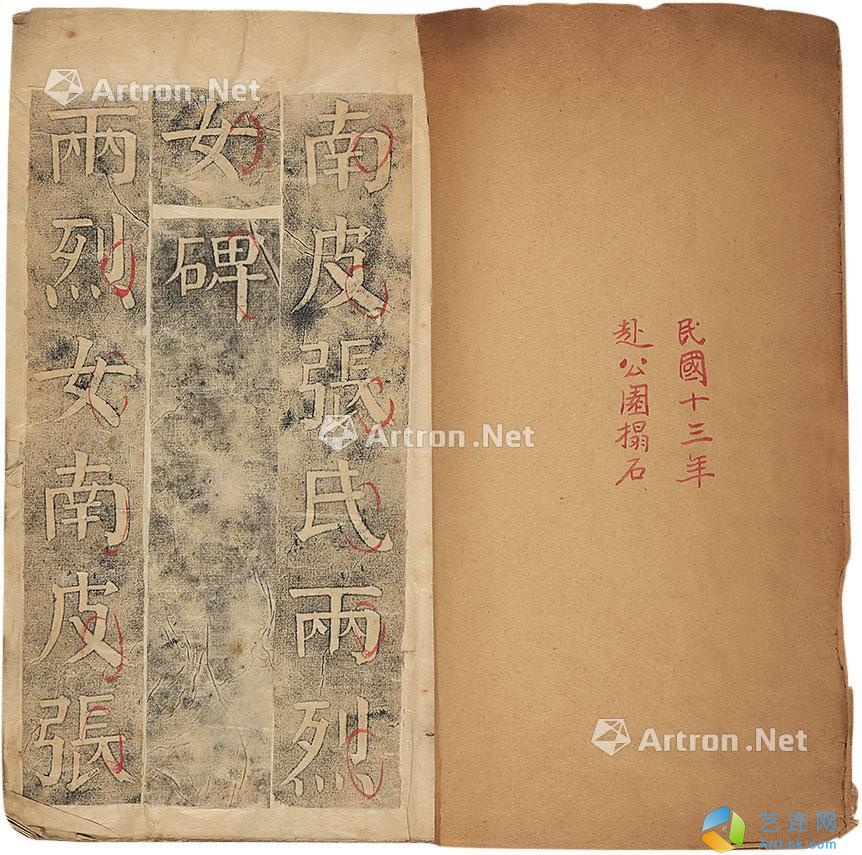 民國十三年
赴公園搨石
南皮張氏兩烈
女碑
兩烈女南皮張
Artron.Net
Artron.Net
Artron.Net
艺连网